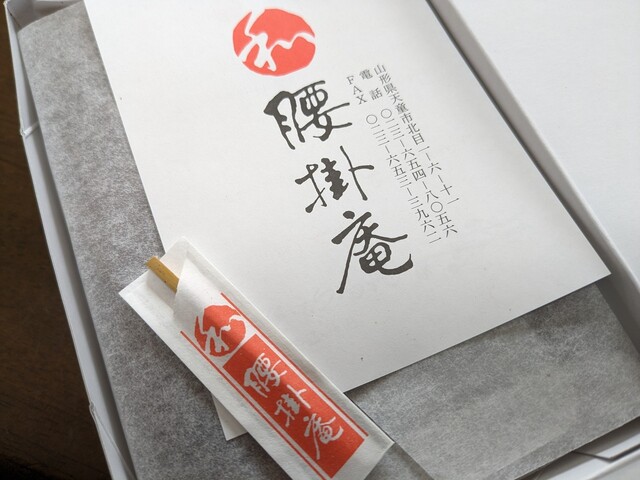 和
腰掛庵
山形県天童市北目一ー六ー十一
電話 〇二三ー六五四ー八〇五六
FAX 〇二三ー六五三ー三九六二
和
腰掛庵